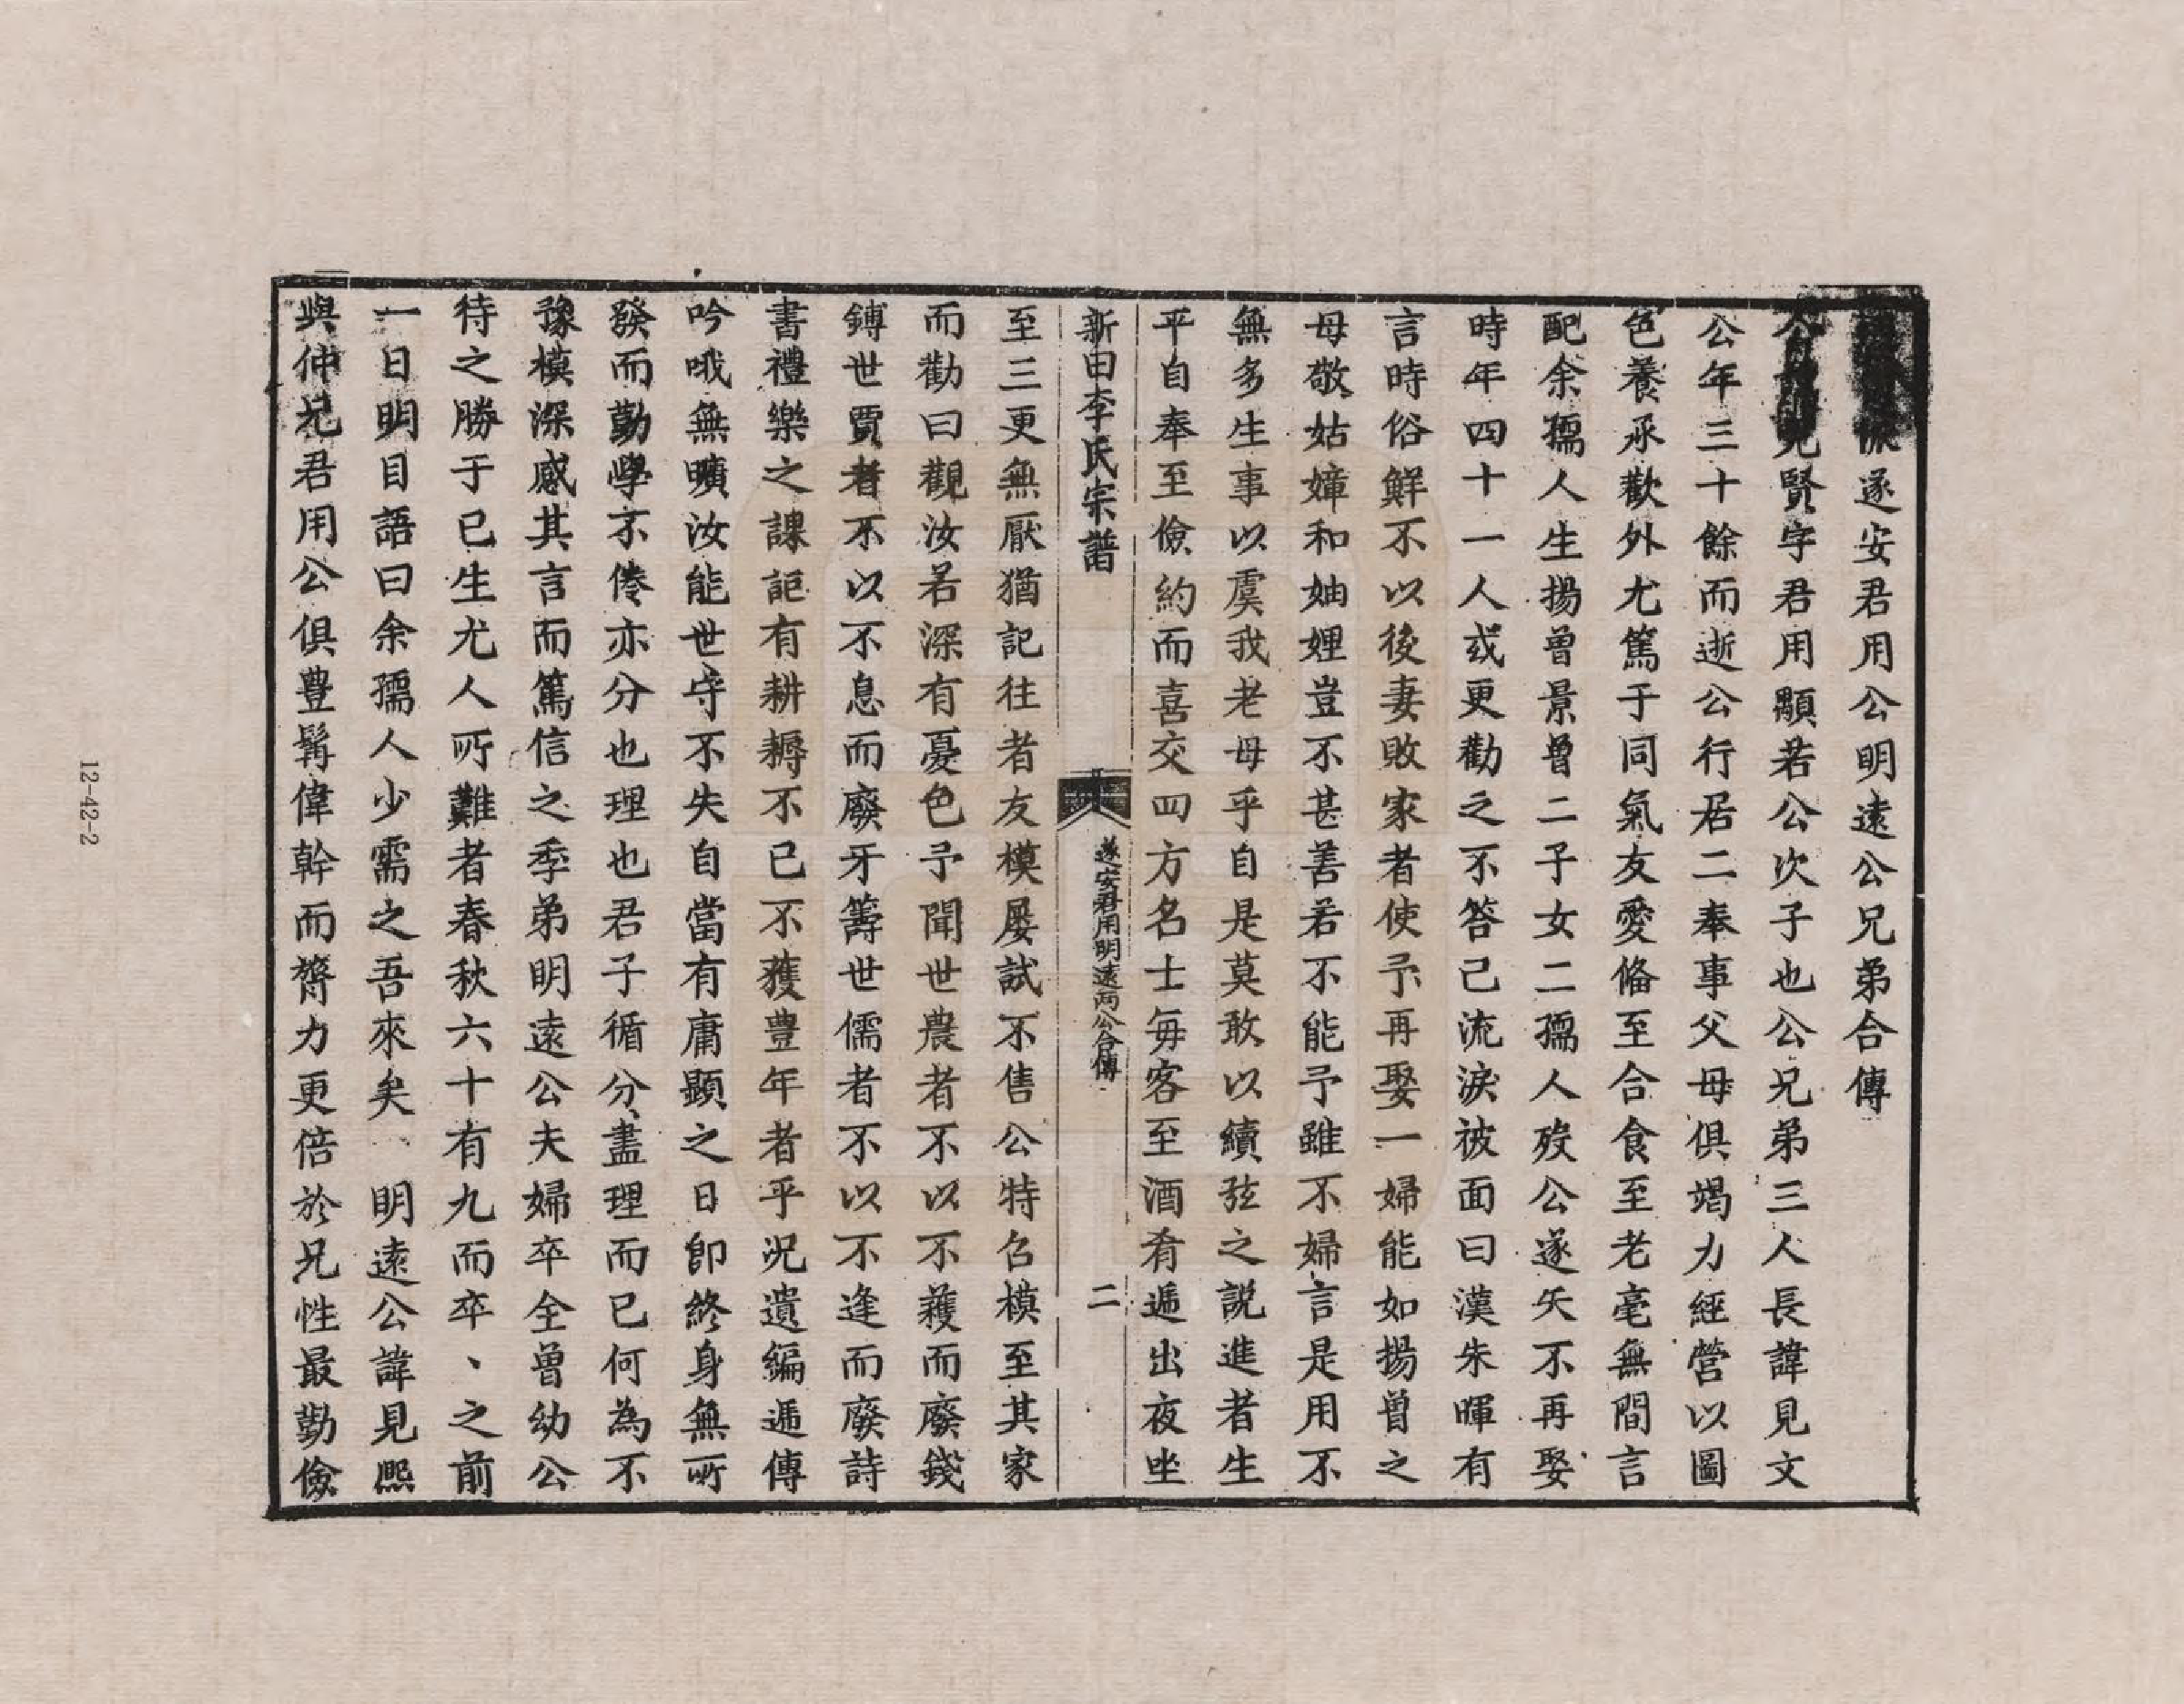 遂安君用公明遠公兄弟合傳
公見賢字君用顯若公次子也公兄弟三人長諱見文
公年三十餘而逝公行居二奉事父母俱竭力經營以圖
色養承歡外尤篤于同氣友愛俻至合食至老亳無間言
配余孺人生揚曾景曾二子女二孺人歿公遂矢不再娶
時年四十一人或更勸之不答己流淚被面曰漢朱暉有
言時俗鮮不以後妻敗家者使予再娶一婦能如揚曾之
母敬姑嫜和妯娌豈不甚善若不能予雖不婦言是用不
無多生事以虞我老母乎自是莫敢以續弦之説進者生
平自奉至儉約而喜交四方名士毎客至酒肴遞出夜坐
新田李氏宗譜
遂安君用明遠兩公合傳
二
至三更無厭猶記往者友模屡試不售公特召模至其家
而勸曰觀汝若深有憂色予聞世農者不以不穫而廢錢
鎛世賈者不以不息而廢牙籌世儒者不以不逢而廢詩
書禮樂之課詎有耕耨不已不獲豊年者乎况遺編遞傳
吟哦無曠汝能世守不失自當有庸顯之日即終身無所
發而勤學不倦亦分也理也君子循分盡理而已何為不
豫模深感其言而篤信之季弟明遠公夫婦卒全曾幼公
待之勝于已生尤人所難者春秋六十有九而卒、之前
一日明目語曰余孺人少需之吾來矣、明遠公諱見熙
與仲兄君用公俱豊髯偉幹而膂力更倍於兄性最勤儉
12-42-2